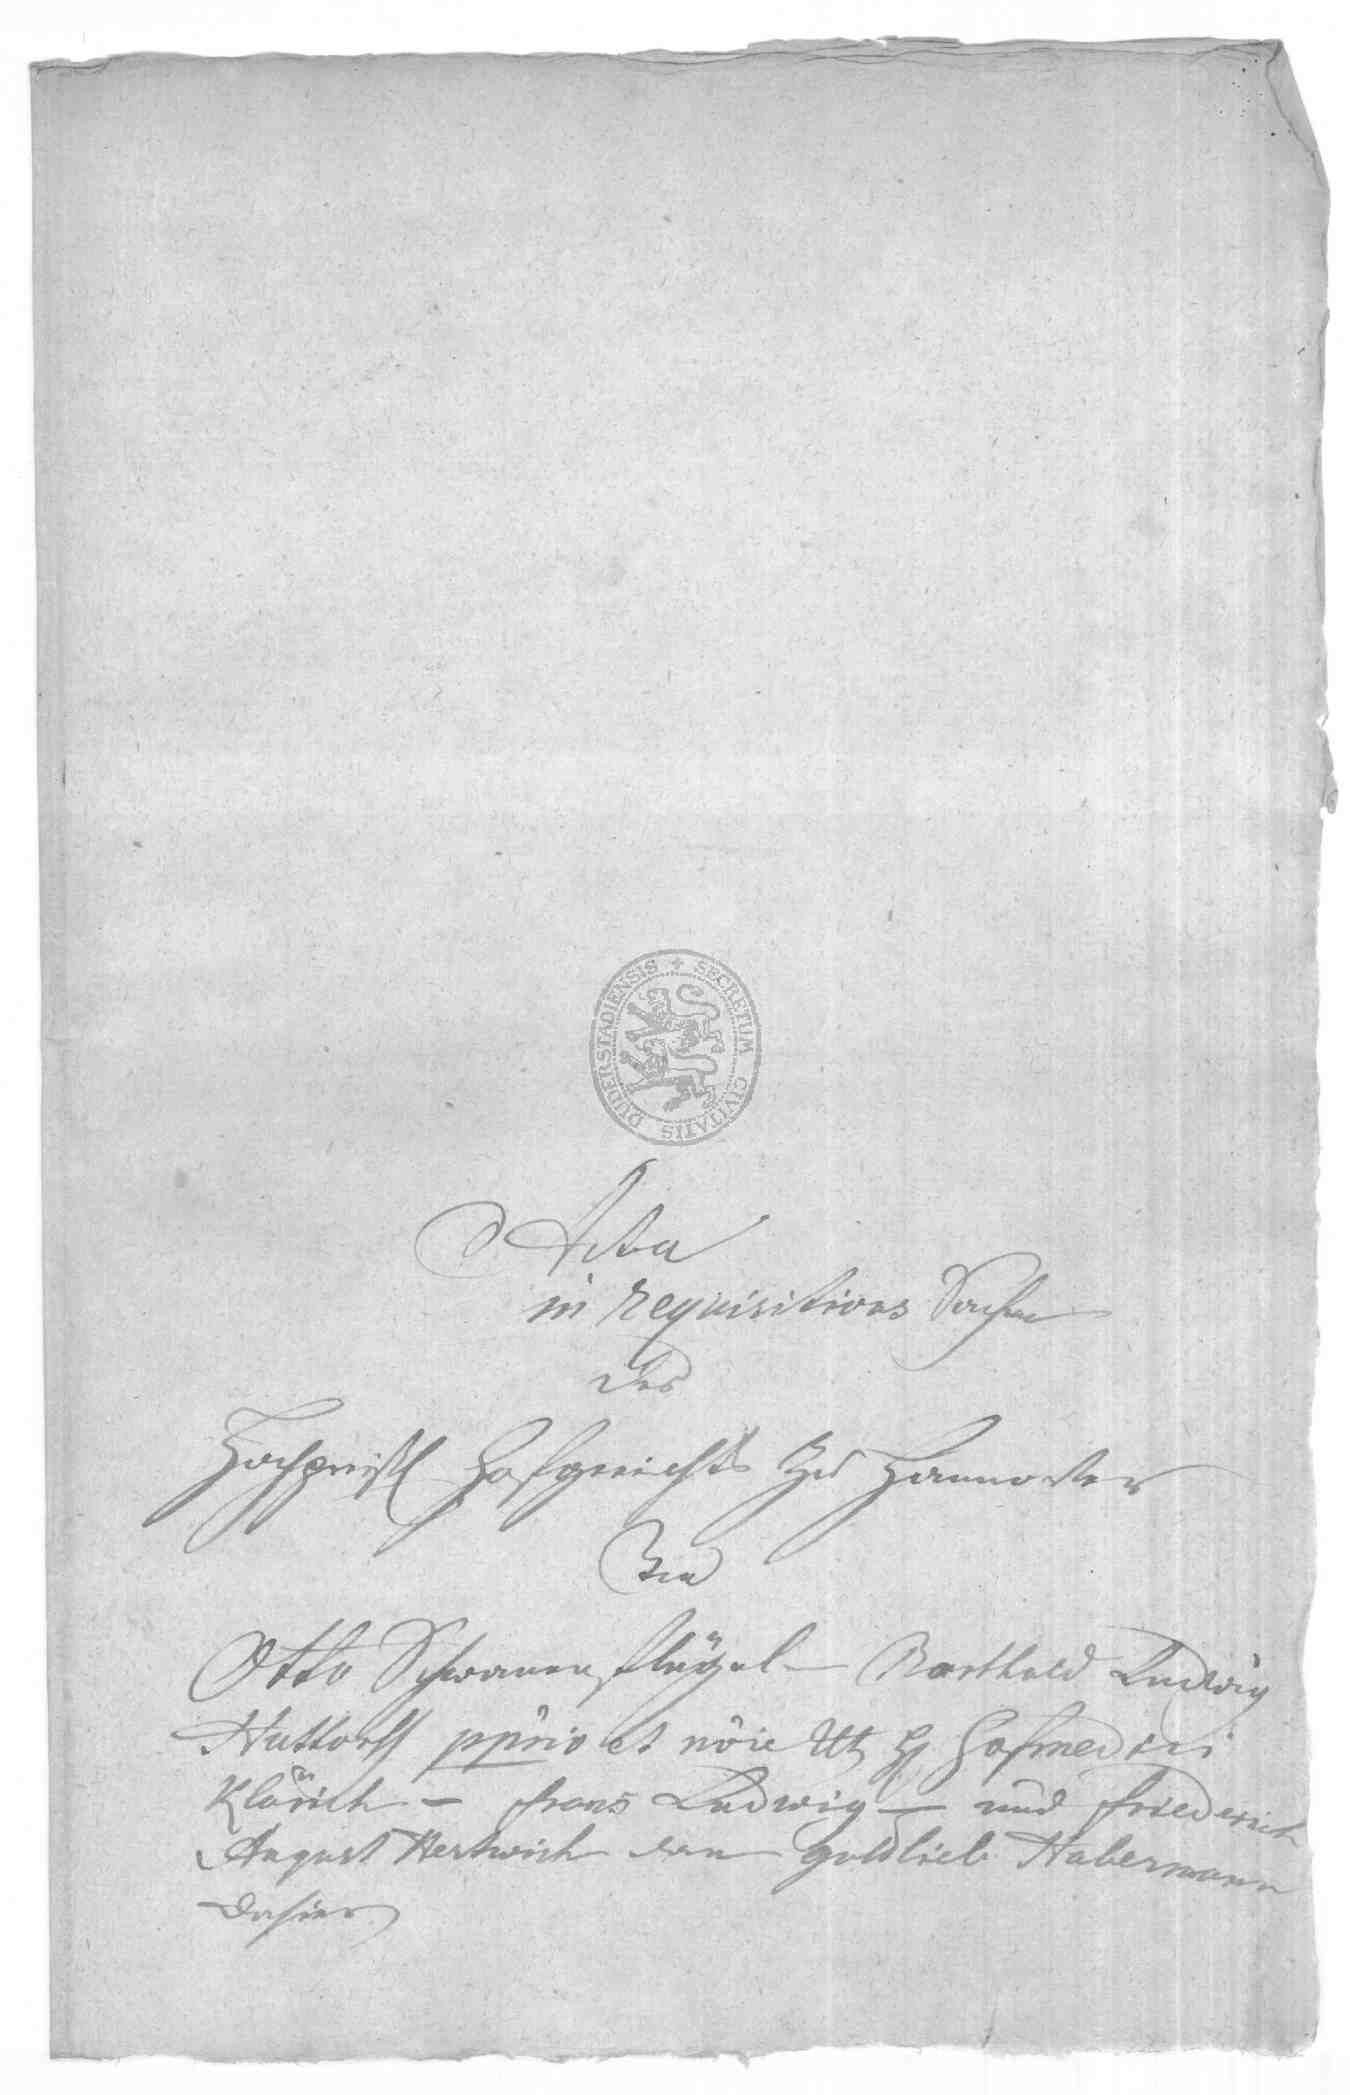 SECRETUM CIVITATIS DUDERSTADIENSIS
Acta
in requisitions Sachen
des
Hofgerichts zu Hannover
Otto Schwanenflügel - Barthold Ludwig
Huttorff pprio et nõie Hofmedici
Klärich - Frans Ludwig - und Friederich
August Hertwich dan Goldlieb Habermann
dahier